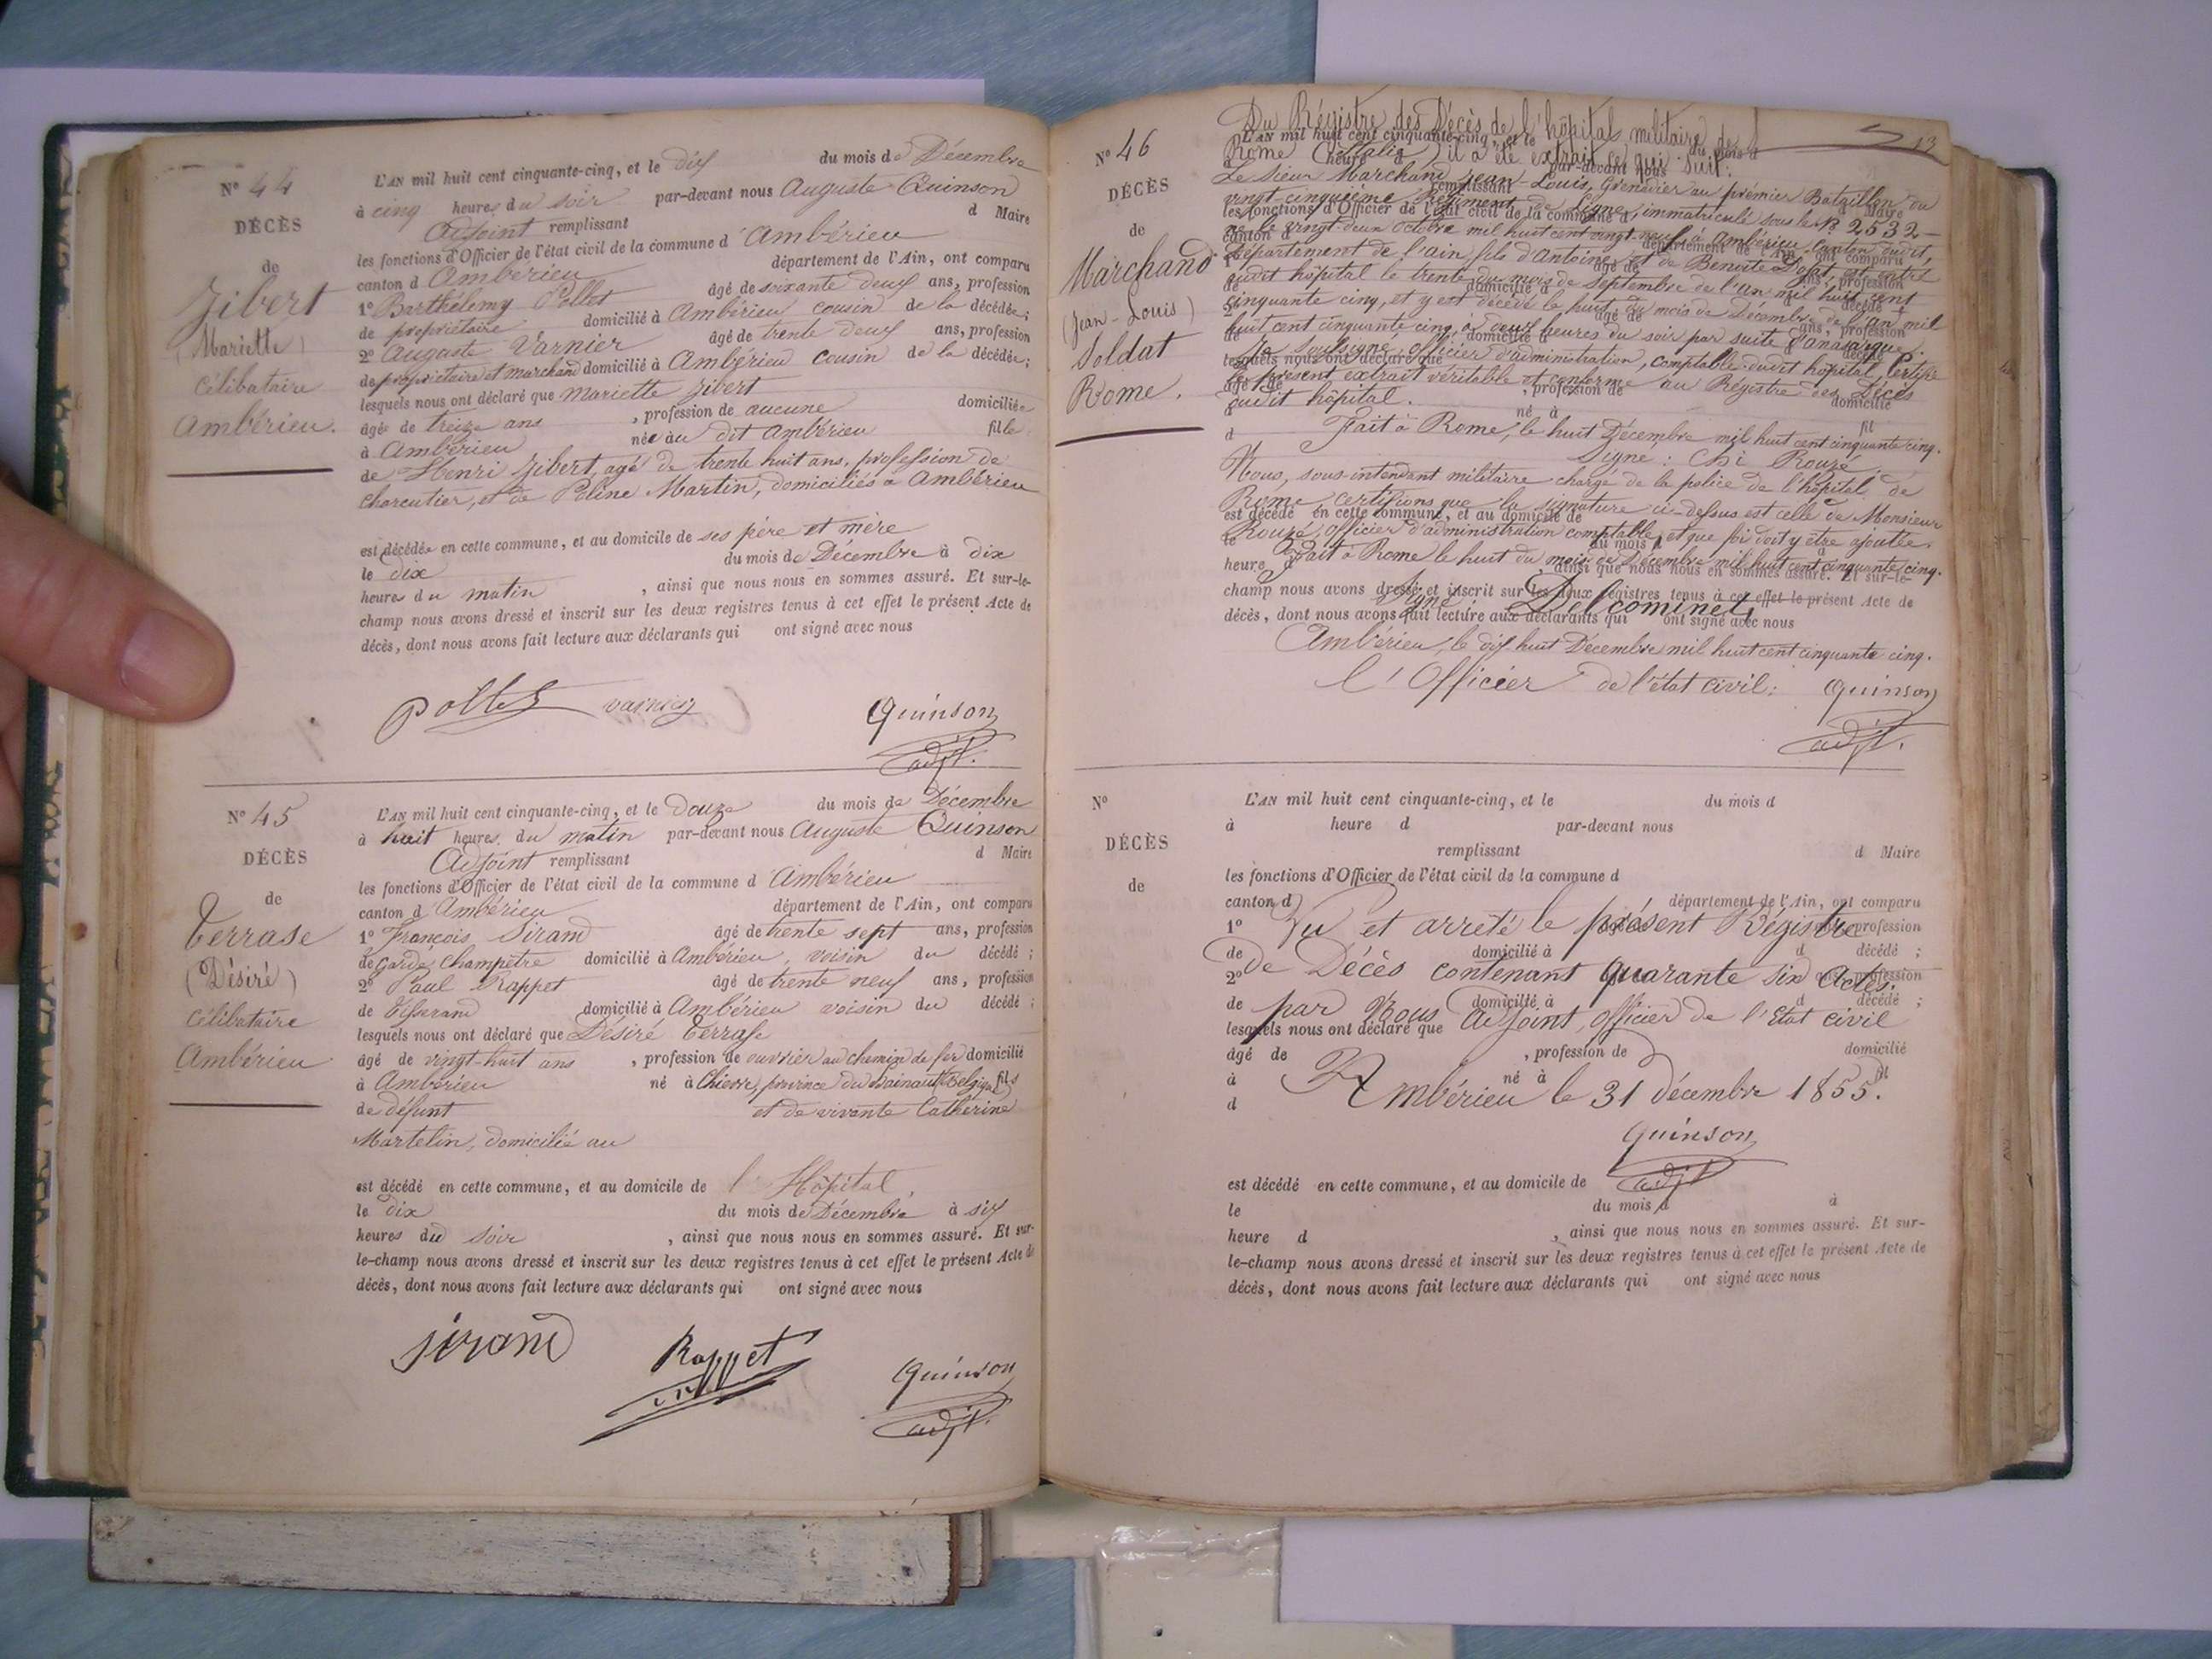 N° 44
DÉCÈS
de
Jibert
(Mariette)
Célibataire
Ambérieu.
L'AN mil huit cent cinquante-cinq, et le dix du mois de Décembre
à cinq heures du soir par-devant nous Auguste Quinson
Adjoint remplissant d Maire
les fonctions d'Officier de l'état civil de la commune d'Ambérieu
canton d'Ambérieu département de l'Ain, ont comparu
1° Barthélemy Pollet âgé de soixante deux ans, profession
de propriétaire domicilié à Ambérieu cousin de la décédée;
2° Auguste Varnier âgé de trente deux ans, profession
de propriétaire et marchand domicilié à Ambérieu cousin de la décédée;
lesquels nous ont déclaré que Mariette Jibert
âgée de treize ans, profession de aucune domiciliée
à Ambérieu née au dit Ambérieu fille
de Henri Jibert, agé de trente huit ans, profession de
charcutier, et de Poline Martin, domiciliés à Ambérieu
est décédée en cette commune, et au domicile de ses père et mère
le dix du mois de Décembre à dix
heures du matin, ainsi que nous nous en sommes assuré. Et sur-le-
champ nous avons dressé et inscrit sur les deux registres tenus à cet effet le présent Acte de
décès, dont nous avons fait lecture aux déclarants qui ont signé avec nous
Pollet varnier Quinson
adjt.
N° 45
DÉCÈS
de
Terrase
(Désiré)
Célibataire
Ambérieu
L'AN mil huit cent cinquante-cinq, et le Douze du mois de Décembre
à huit heures du matin par-devant nous Auguste Quinson
Adjoint remplissant d Maire
les fonctions d'Officier de l'état civil de la commune d Ambérieu
canton d'Ambérieu département de l'Ain, ont comparu
1° François Sirand âgé de trente sept ans, profession
de Garde champetre domicilié à Ambérieu, voisin du décédé;
2° Paul Rappet âgé de trente neuf ans, profession
de Tisserand domicilié à Ambérieu voisin du décédé;
lesquels nous ont déclaré que Désiré Terrase
âgé de vingt-huit ans, profession de ouvrier au chemin de fer domicilié
à Ambérieu né à Chievre, province du hainaut (Belgique) fils
de défunt et de vivante Catherine
Martelin, domicilié au
est décédé en cette commune, et au domicile de l'Hôpital
le dix du mois de Décembre à six
heures du soir, ainsi que nous nous en sommes assuré. Et sur-
le-champ nous avons dressé et inscrit sur les deux registres tenus à cet effet le présent Acte de
décès, dont nous avons fait lecture aux déclarants qui ont signé avec nous
Sirand Rappet Quinson
adjt.
13
N° 46
DÉCÈS
de
Marchand
(Jean-Louis)
Soldat
Rome.
Du Régistre des Décès de l'hôpital militaire de
Rome (Italie) il a été extrait ce qui suit:
Le Sieur Marchand Jean-Louis, Grenadier au prémier Bataillon du
vingt-cinquième Régiment de Ligne, immatriculé sous le N° 2532
né le vingt-deux Octobre mil huit cent vingt-neuf à Ambérieu, canton dudit,
département de l'ain, fils d'Antoine, et de Benoite est entré
audit hôpital le trente du mois de Septembre de l'an mil huit cent
cinquante cinq, et y est décédé le huit du mois de Décembre de l'an mil
huit cent cinquante cinq, à deux heures du soir par suite d'anasarque.
Je soussigné, officier d'administration, comptable dudit hôpital, Certifie
le présent extrait véritable et conforme au Régistre des Décès
dudit hôpital.
Fait à Rome, le huit Décembre mil huit cent cinquante cinq.
Signé: Chi Rouzé.
Nous, sous-intendant militaire chargé de la police de l'hôpital de
Rome, certifions que la signature ci-dessus est celle de Monsieur
Rouzé, officier d'administration comptable, et que foi doit y être ajoutée.
Fait à Rome le huit du mois de Décembre mil huit cent cinquante cinq.
Signé Delcominet
champ nous avons dressé et inscrit sur les deux registres tenus à cet effet le présent Acte de
décès, dont nous avons fait lecture aux déclarants qui ont signé avec nous
Ambérieu, le dix huit Décembre mil huit cent cinquante cinq.
l'Officier de l'état civil: Quinson
adjt.
N°
DÉCÈS
de
L'AN mil huit cent cinquante-cinq, et le du mois d
à heure d par-devant nous
remplissant d Maire
les fonctions d'Officier de l'état civil de la commune d
canton d département de l'Ain, ont comparu
1° Vu et arrêté le présent Régistre profession
de domicilié à d décédé;
2° de Décès contenant quarante six Actes.
de domicilié à d décédé;
par Nous Adjoint, Officier de l'Etat civil
lesquels nous ont déclaré que
âgé de, profession de domicilié
à né à fil
d Ambérieu le 31 décembre 1855.
Quinson
adjt
est décédé en cette commune, et au domicile de
le du mois d à
heure d, ainsi que nous nous en sommes assuré. Et sur-
le-champ nous avons dressé et inscrit sur les deux registres tenus à cet effet le présent Acte de
décès, dont nous avons fait lecture aux déclarants qui ont signé avec nous